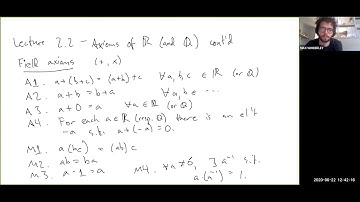 Lecture 2.2 – Axioms of ℝ (and ℚ) cont'd
Field axioms (+, ×)
A1. a+(b+c) = (a+b)+c ∀a,b,c ∈ ℝ (or ℚ)
A2. a+b = b+a ∀a,b ∈ ...
A3. a+0 = a ∀a ∈ ℝ (or ℚ)
A4. For each a∈ℝ (resp. ℚ) there is an el't
-a s.t. a+(-a) = 0.
M1. a(bc) = (ab)c
M2. ab = ba
M3. a·1 = a
M4. ∀a ≠ 0, ∃ a⁻¹ s.t.
a·(a⁻¹) = 1.
2020-06-22 12:42:16